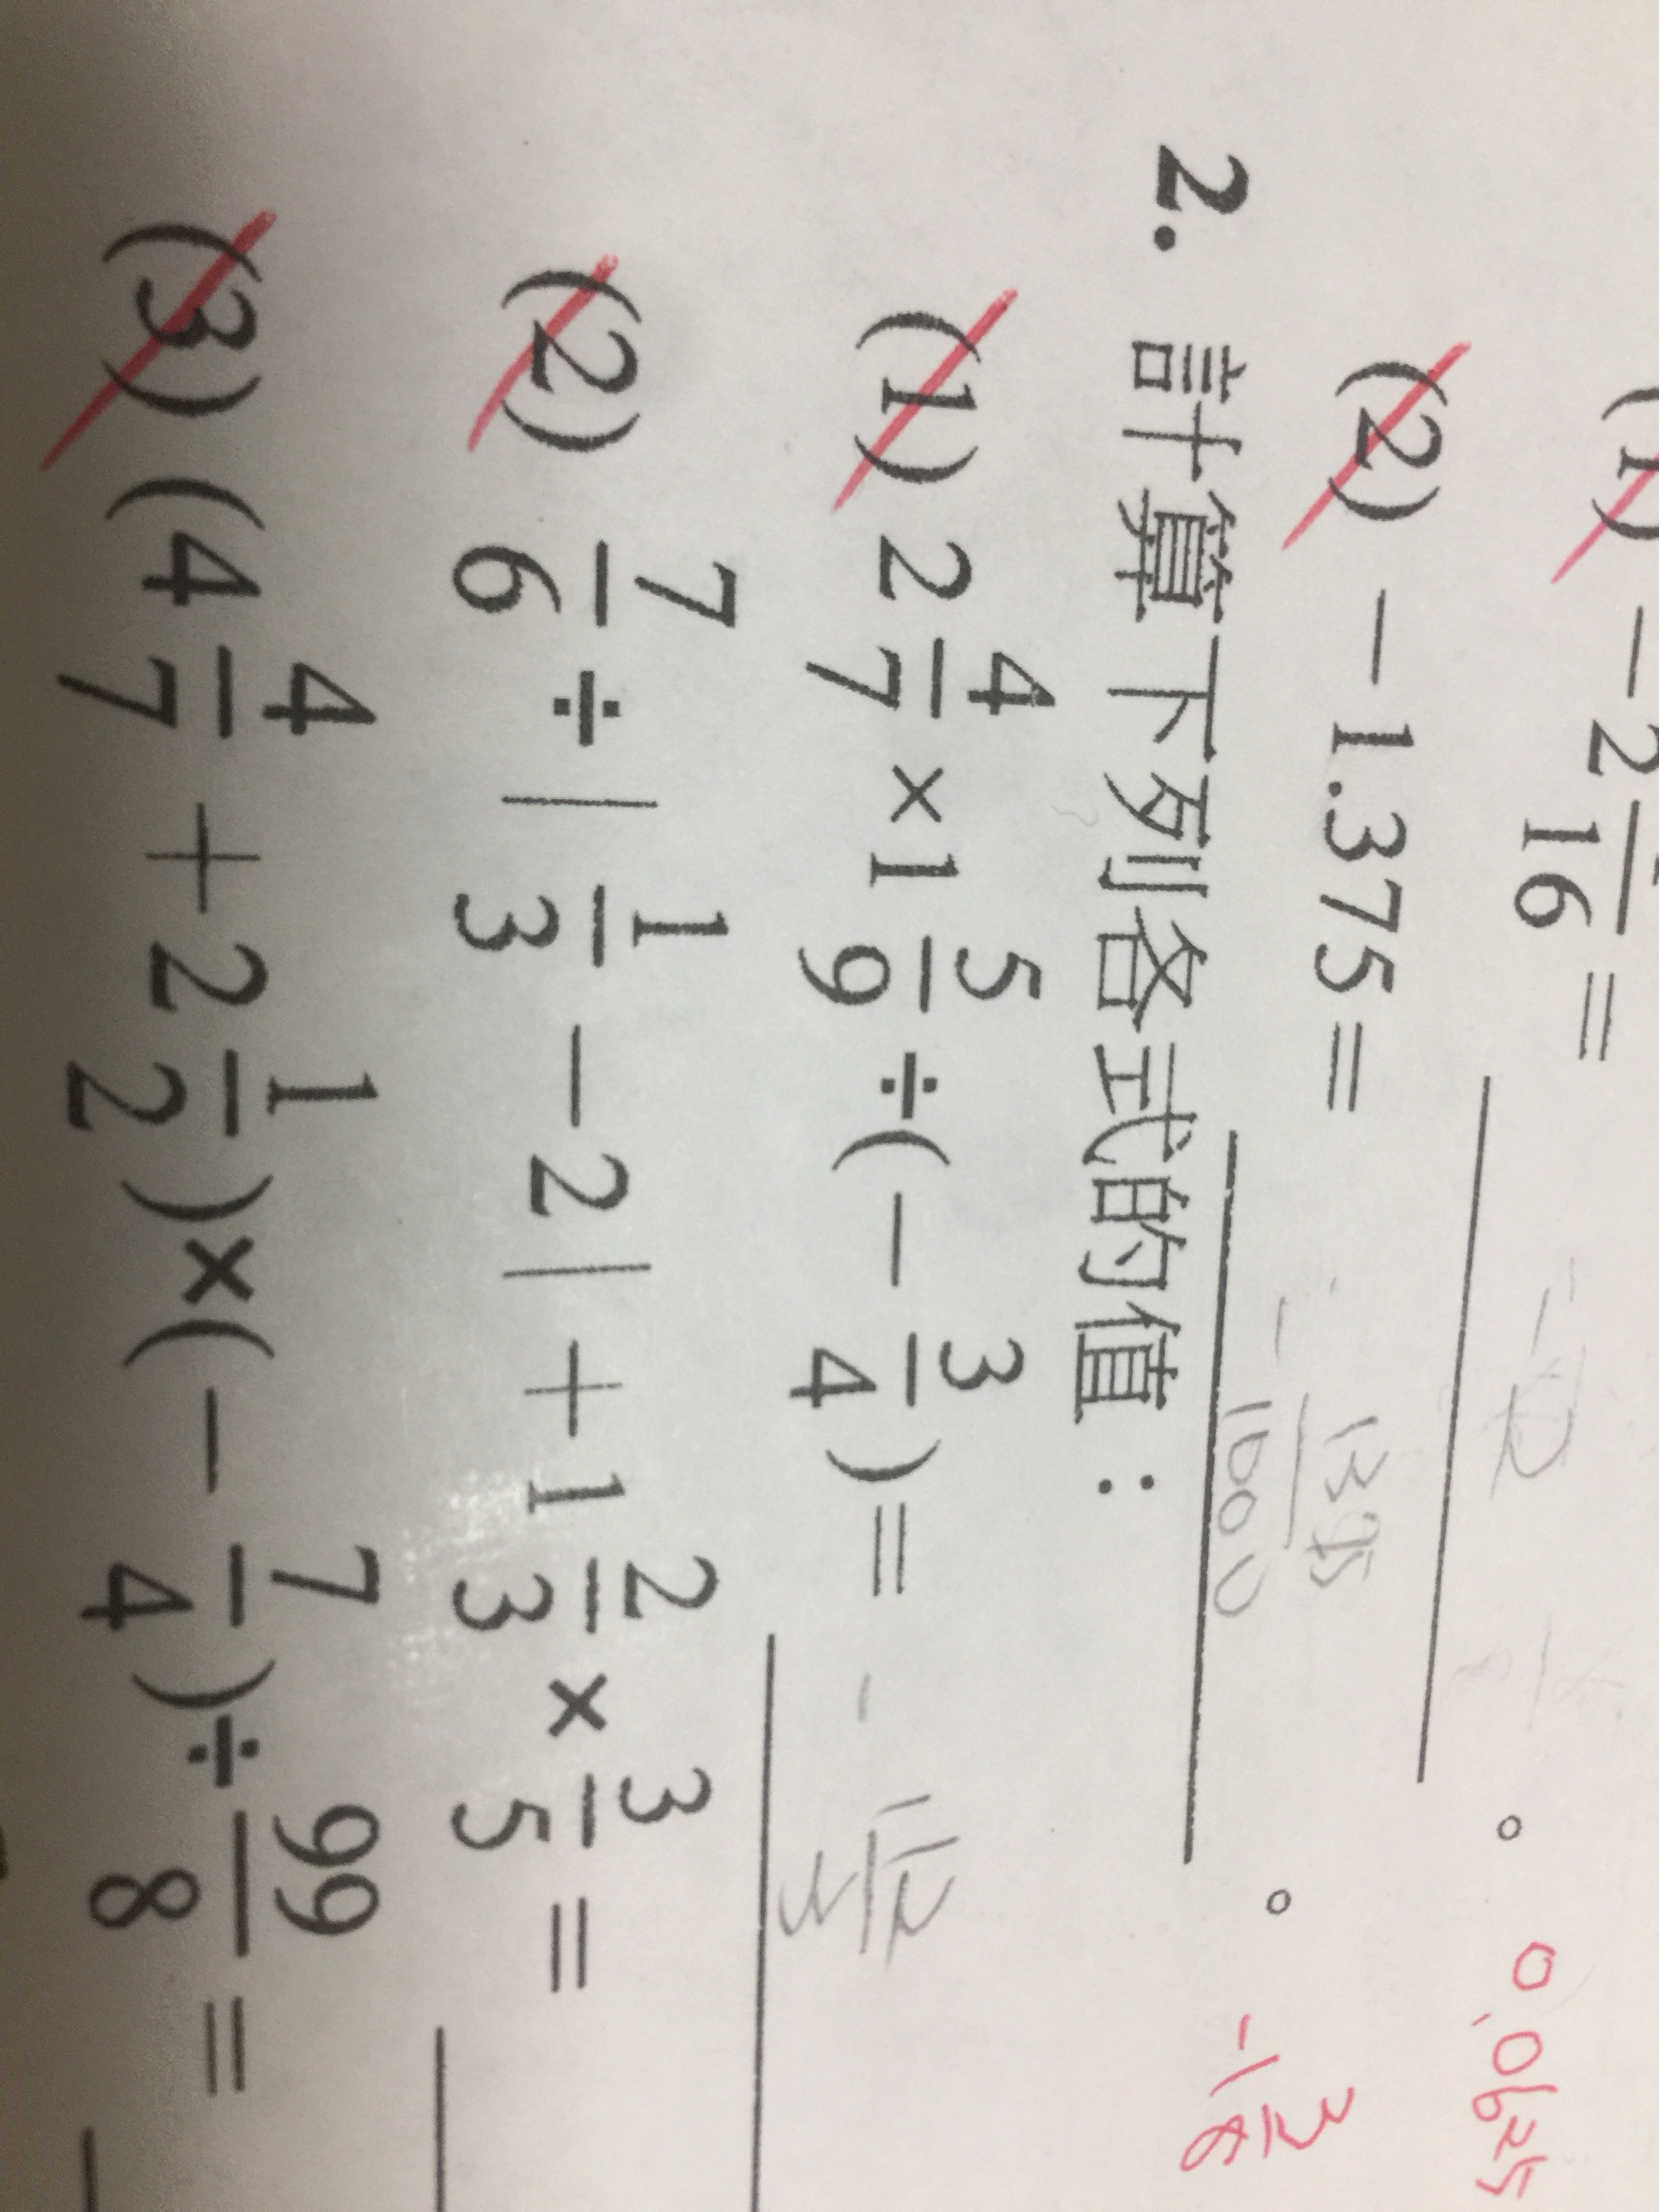 (1) -2 1/16 = 0.0625
(2) -1.375 = - 1375/1000 。 -1 3/8
2. 計算下列各式的值：
(1) 2 4/7 × 1 5/9 ÷ (- 3/4) =
(2) 7/6 ÷ | 1/3 - 2 | + 1 2/3 × 3/5 =
(3) (4 4/7 + 2 1/2) × (- 7/4) ÷ 99/8 =